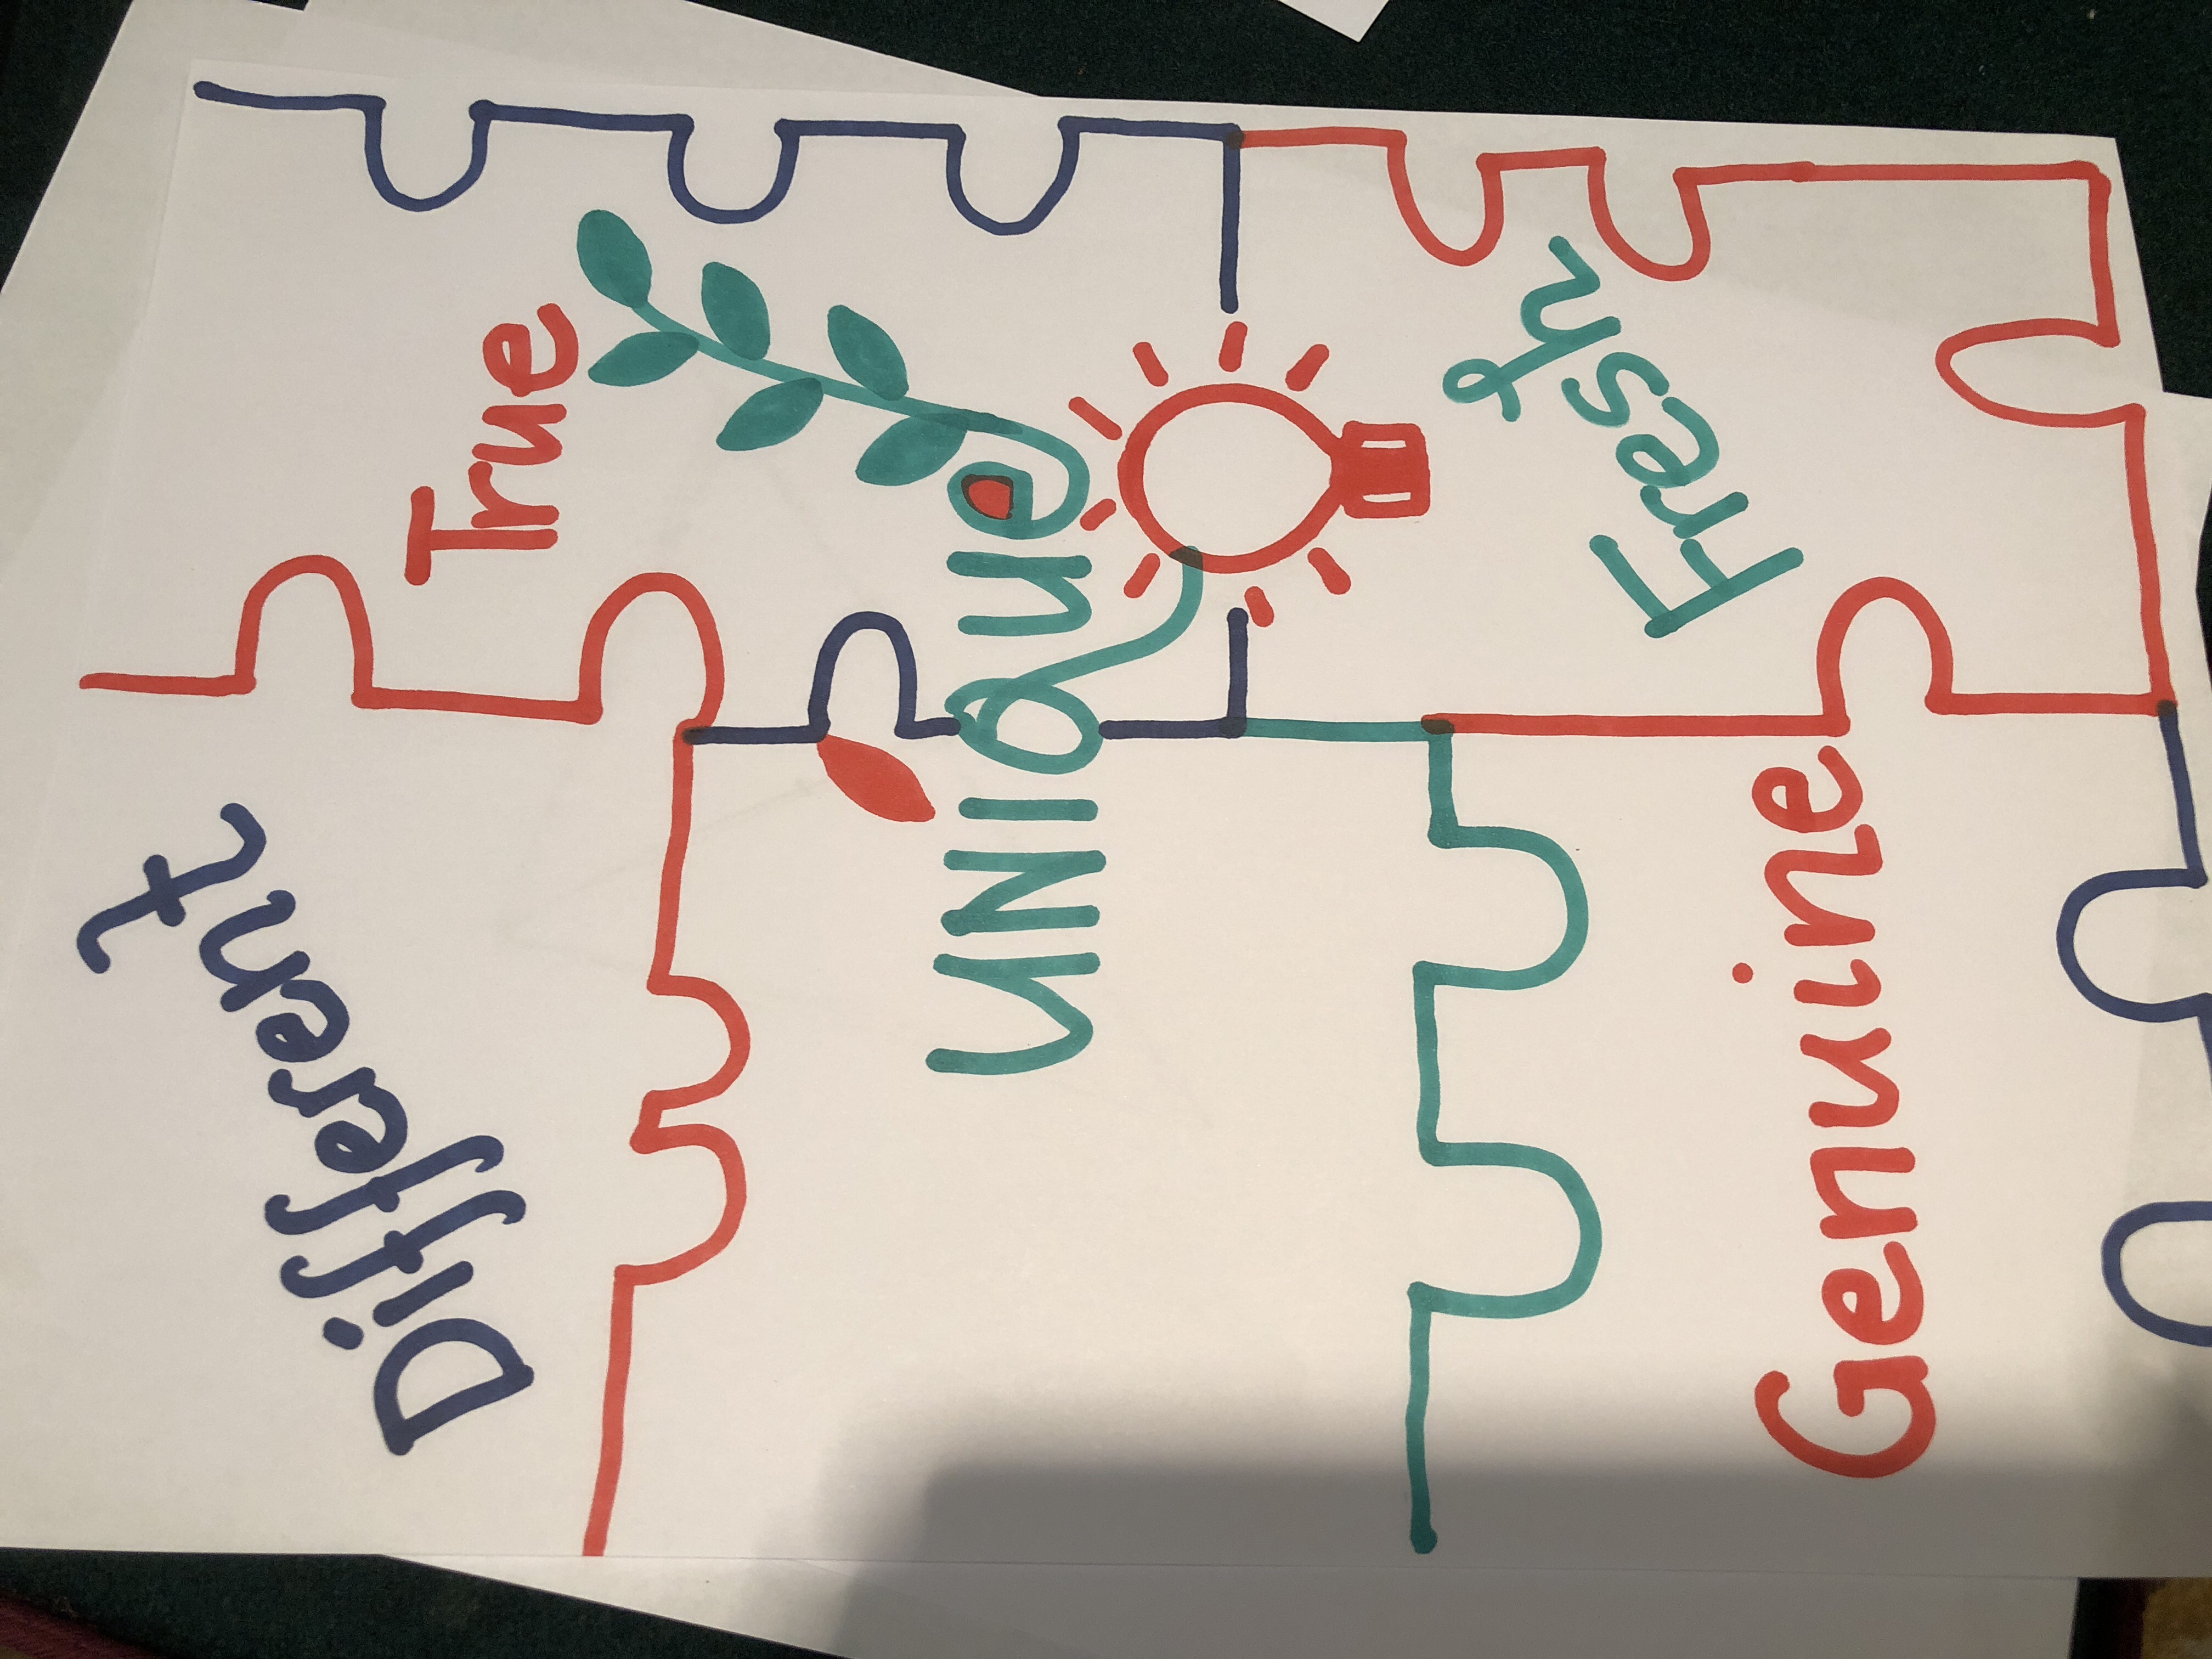 Different
True
UNIQUe
Fresh
Genuine